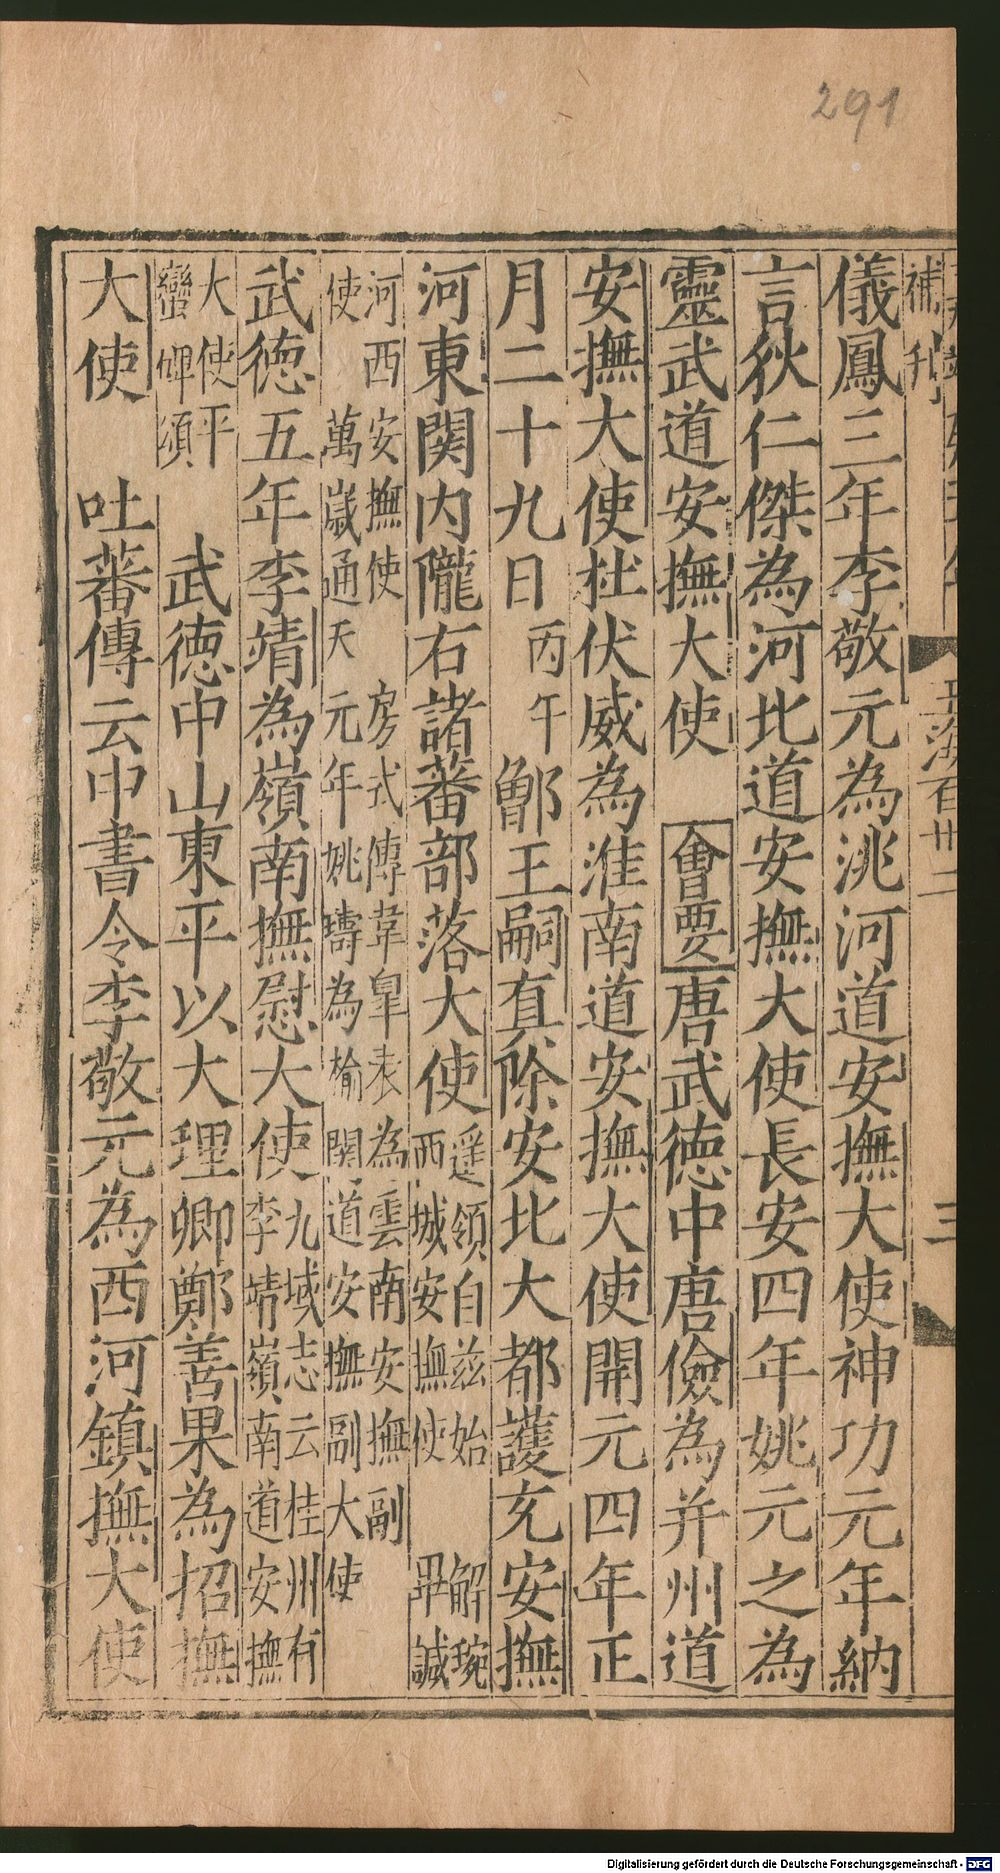 291
補刊
玉海百卅二
三
儀鳳三年李敬元為洮河道安撫大使神功元年納
言狄仁傑為河北道安撫大使長安四年姚元之為
靈武道安撫大使 會要 唐武徳中唐儉為并州道
安撫大使杜伏威為淮南道安撫大使開元四年正
月二十九日丙午鄫王嗣真除安北大都護充安撫
河東関内隴右諸蕃部落大使遥領自兹始 解琬西城安撫使 畢諴
河西安撫使 房式傳韋臯表為雲南安撫副使 萬歳通天元年姚璹為榆関道安撫副大使
武徳五年李靖為嶺南撫慰大使九域志云桂州有李靖嶺南道安撫
大使平蠻碑頌 武徳中山東平以大理卿鄭善果為招撫
大使 吐蕃傳云中書令李敬元為西河鎮撫大使
Digitalisierung gefördert durch die Deutsche Forschungsgemeinschaft - DFG